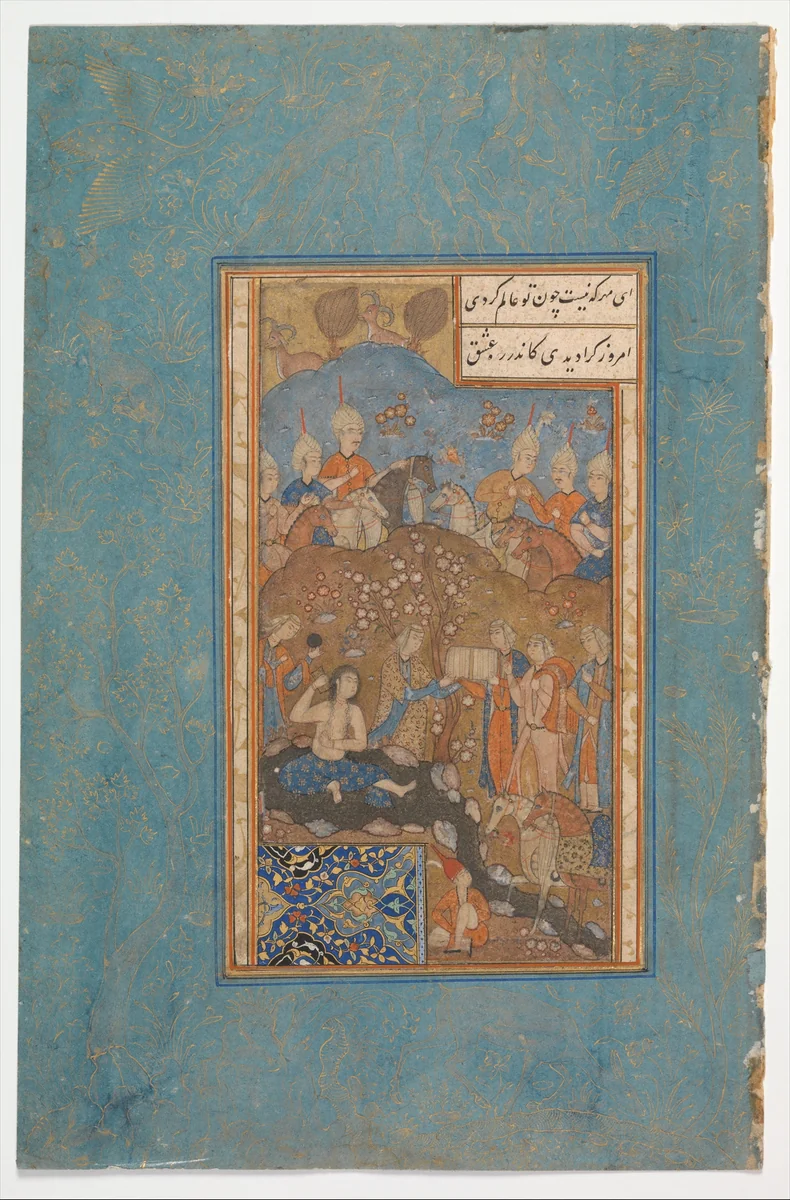 ای مهر که نیست چون تو عالم کردی
امروز کرا دیدی کاندر ره عشق